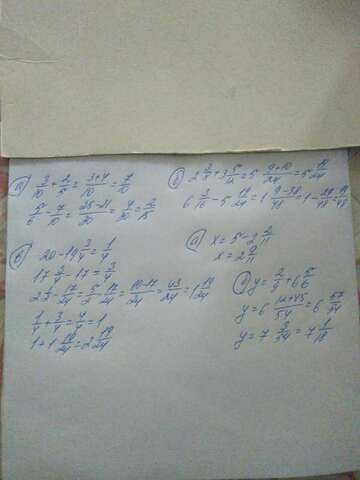 а) 3/10 + 2/5 = (3+4)/10 = 7/10
5/6 - 7/10 = (25-21)/30 = 4/30 = 2/15
б) 2 3/8 + 3 5/12 = 5 (9+10)/24 = 5 19/24
6 3/16 - 5 19/24 = 1 (9-38)/48 = 1 -
в) 20 - 19 3/4 = 1/4
17 3/4 - 17 = 3/4
17/24 = 43/24 = 1 19/24
1/4 + 3/4 = 4/4 = 1
1 + 1 19/24 = 2 19/24
x = 5 - 2 2/11
x = 2 9/11
y = 2/9 + 6 5/6
y = 6 (12+45)/54 = 6 57/54
y = 7 3/54 = 7 1/18